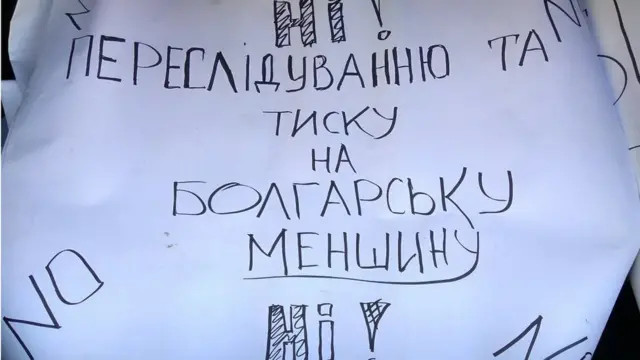 НІ!
ПЕРЕСЛІДУВАННЮ ТА
ТИСКУ
НА
БОЛГАРСЬКУ
МЕНШИНУ
NO
Ні!